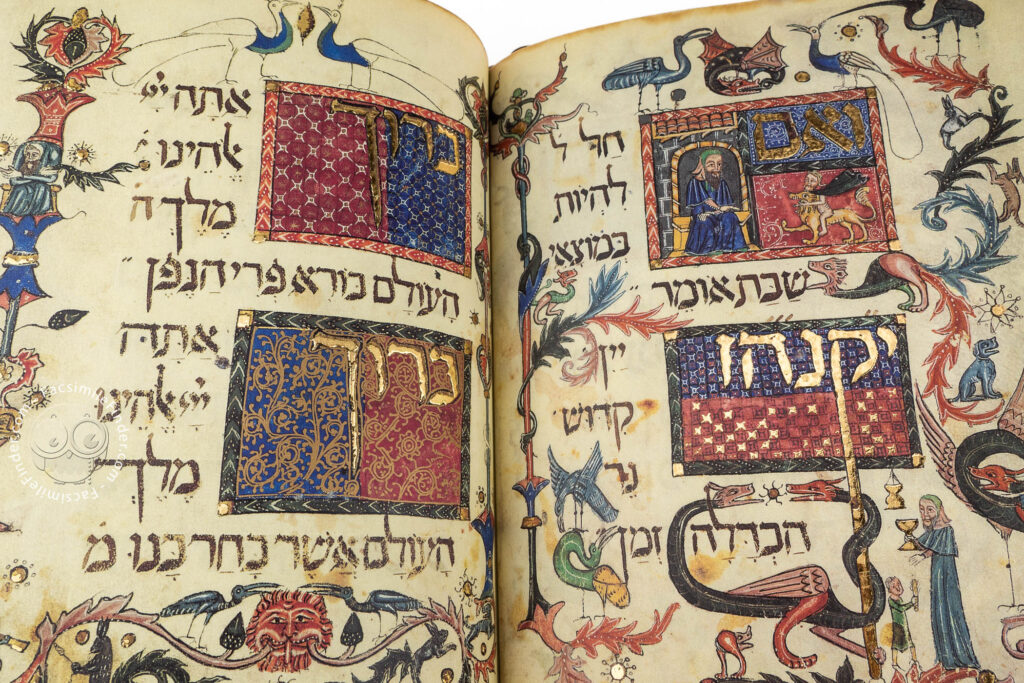 ואם חל ל
להיות
במוצאי
שבת אומר
יקנהז
יין
קדוש
נר
הבדלה זמן
ברוך אתה יי
אלהינו
מלך ה
העולם בורא פרי הגפן
ברוך אתה
יי אלהינו
מלך
העולם אשר בחר בנו מ
FacsimileFinder.com